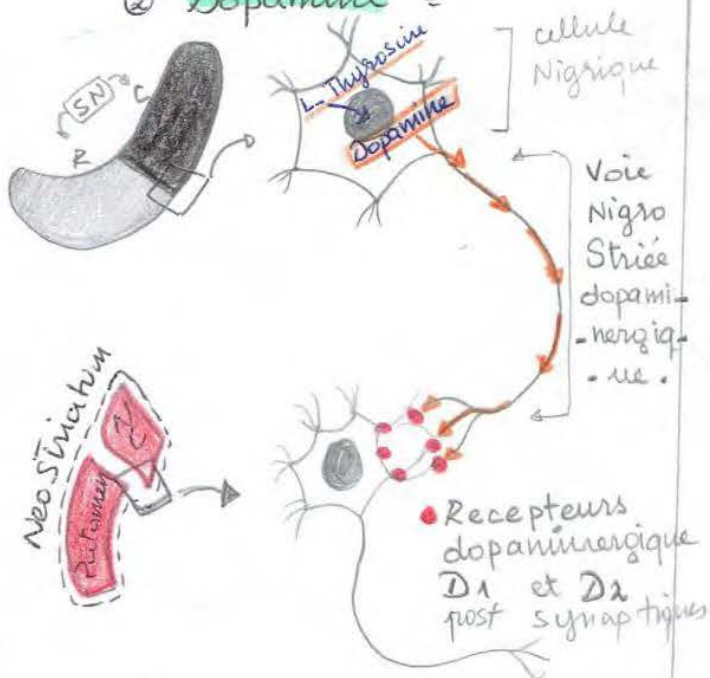 ② Dopamine :
cellule
Nigrique
L-Thyrosine
Dopamine
SN
C
R
Voie
Nigro
Striée
dopami-
-nergiq-
-ue.
Neo Striatum
NC
Putamen
Recepteurs
dopaminergique
D1 et D2
post synaptiques